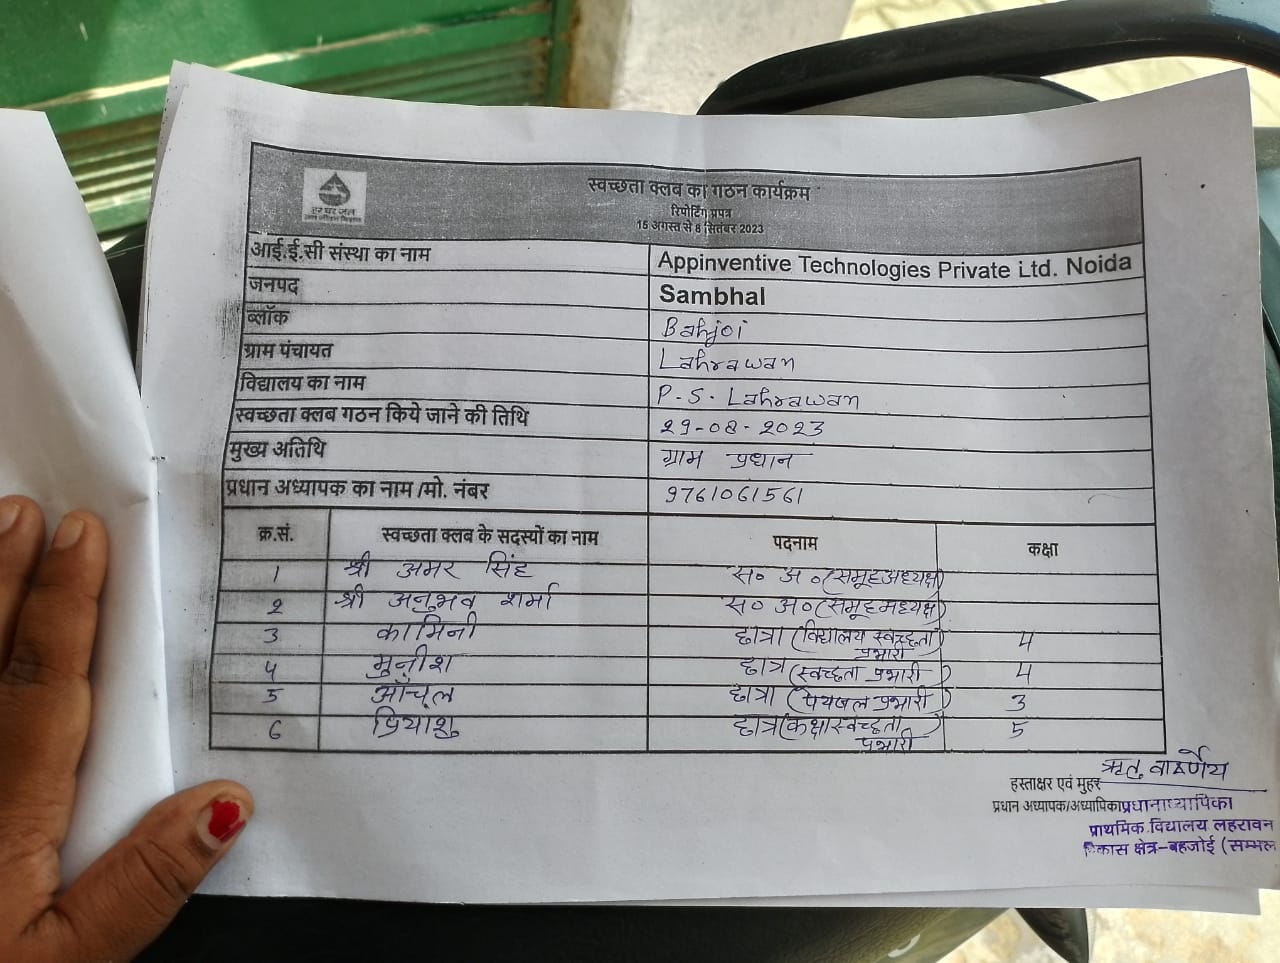 हर घर जल
जल जीवन मिशन
स्वच्छता क्लब का गठन कार्यक्रम
रिपोर्टिंग प्रपत्र
15 अगस्त से 8 सितंबर 2023
आई.ई.सी संस्था का नाम Appinventive Technologies Private Ltd. Noida
जनपद Sambhal
ब्लॉक Bahjoi
ग्राम पंचायत Lahrawan
विद्यालय का नाम P.S. Lahrawan
स्वच्छता क्लब गठन किये जाने की तिथि 29-08-2023
मुख्य अतिथि ग्राम प्रधान
प्रधान अध्यापक का नाम /मो. नंबर 9761061561
क्र.सं. स्वच्छता क्लब के सदस्यों का नाम पदनाम कक्षा
1 श्री अमर सिंह स० अ० (समूह अध्यक्ष)
2 श्री अनुभव शर्मा स० अ० (समूह मध्यक्ष)
3 कामिनी छात्रा (विद्यालय स्वच्छता प्रभारी) 4
4 मुनीश छात्र (स्वच्छता प्रभारी) 4
5 आँचल छात्रा (पेयजल प्रभारी) 3
6 प्रियाशु छात्र (कक्षा स्वच्छता प्रभारी) 5
ऋतु वार्ष्णेय
हस्ताक्षर एवं मुहर
प्रधान अध्यापक/अध्यापिका प्रधानाध्यापिका
प्राथमिक विद्यालय लहरावन
विकास क्षेत्र-बहजोई (सम्भल